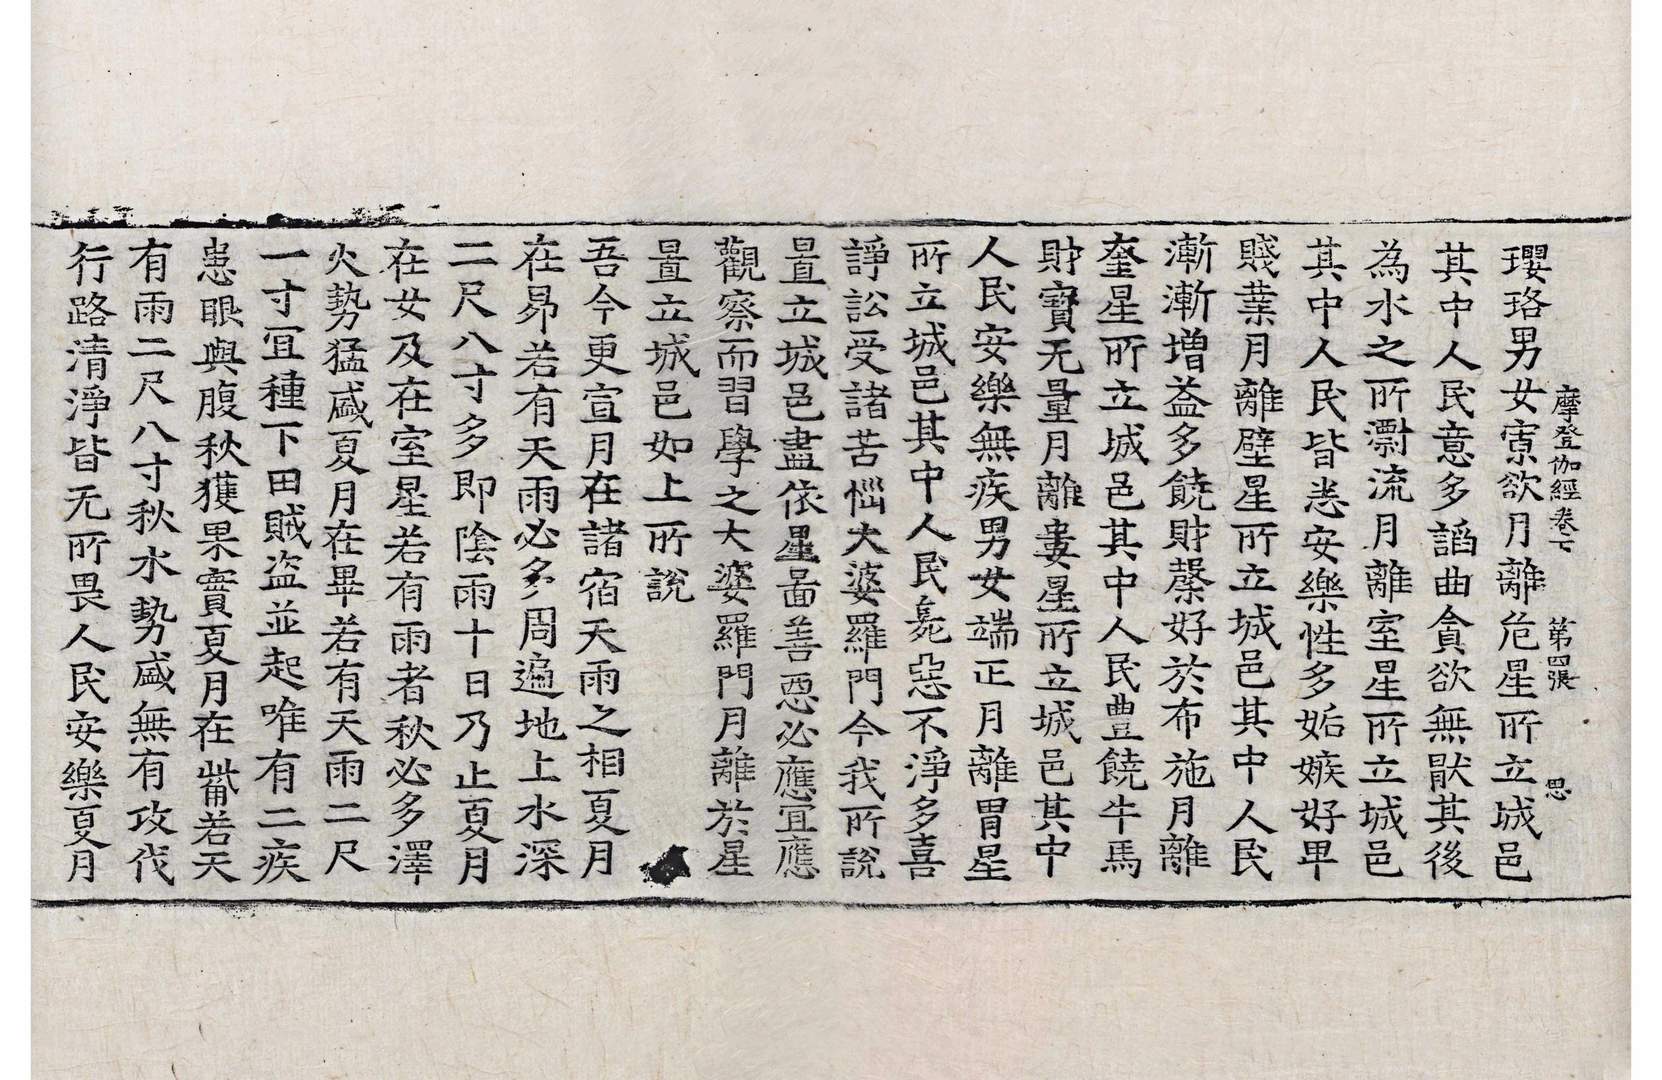 摩登伽經卷七　第四張　思
瓔珞男女寡欲月離危星所立城邑
其中人民意多諂曲貪欲無猒其後
為水之所漂流月離室星所立城邑
其中人民皆悉安樂性多妬嫉好卑
賤業月離壁星所立城邑其中人民
漸漸增益多饒財槃好於布施月離
奎星所立城邑其中人民豊饒牛馬
財寶无量月離婁星所立城邑其中
人民安樂無疾男女端正月離胃星
所立城邑其中人民毙惡不淨多喜
諍訟受諸苦惱大婆羅門今我所說
置立城邑盡依星啚善惡必應宜應
觀察而習學之大婆羅門月離於星
置立城邑如上所說
吾今更宣月在諸宿天雨之相夏月
在昴若有天雨必多周遍地上水深
二尺八寸多即陰雨十日乃止夏月
在女及在室星若有雨者秋必多澤
火勢猛盛夏月在畢若有天雨二尺
一寸宜種下田賊盜並起唯有二疾
患眼與腹秋獲果實夏月在觜若天
有雨二尺八寸秋水勢盛無有攻伐
行路清淨皆无所畏人民安樂夏月